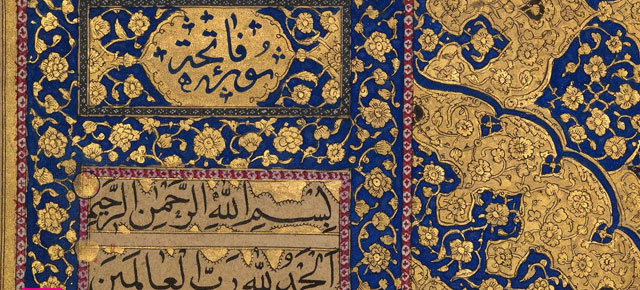 سورة فاتحة
بِسْمِ اللّٰهِ الرَّحْمٰنِ الرَّحِيمِ
اَلْحَمْدُ لِلّٰهِ رَبِّ الْعَالَمِينَ